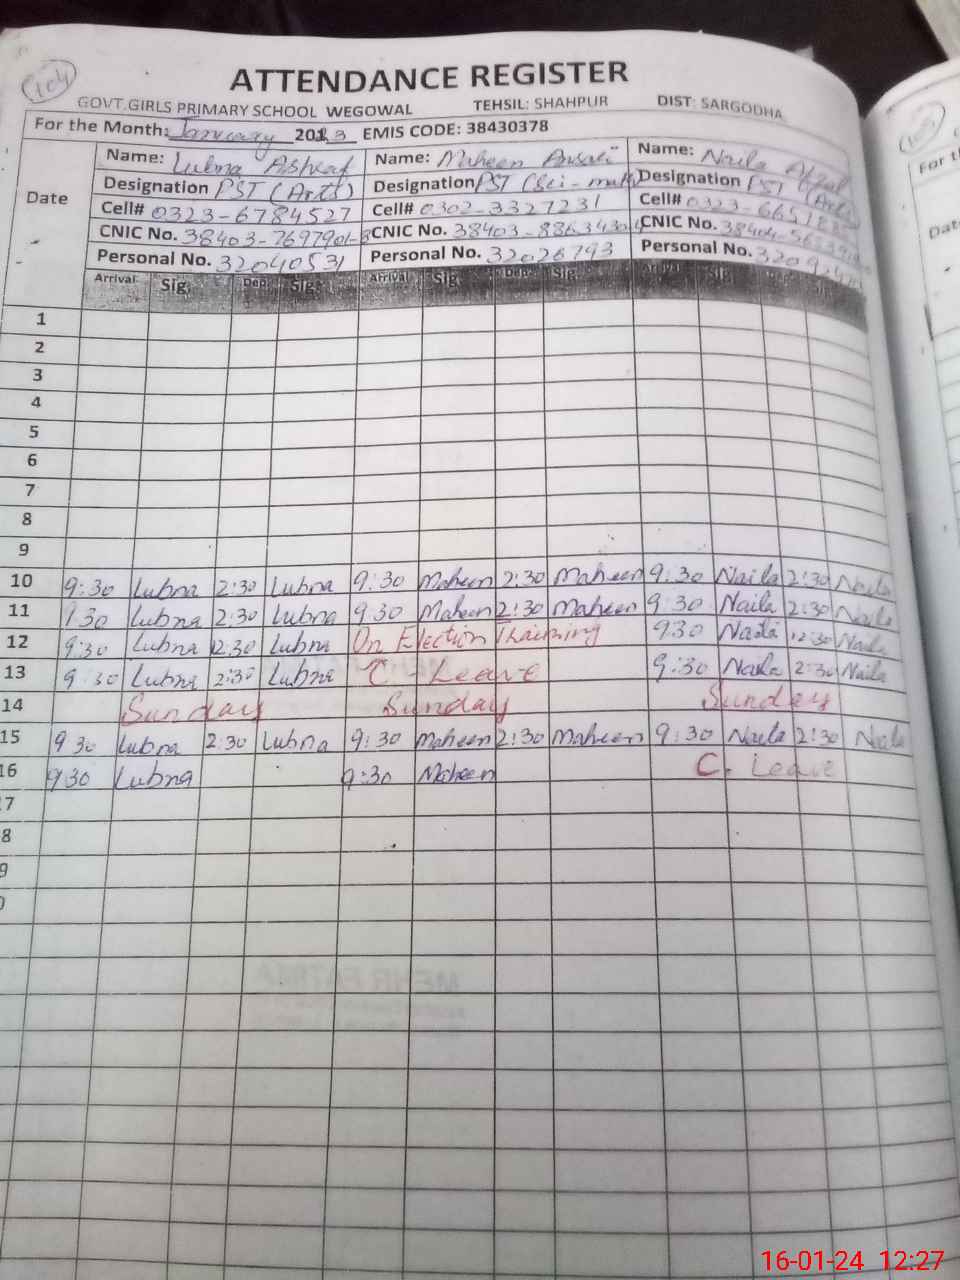 104
ATTENDANCE REGISTER
GOVT.GIRLS PRIMARY SCHOOL WEGOWAL TEHSIL: SHAHPUR DIST: SARGODHA
For the Month: January 2013 EMIS CODE: 38430378
Date
Name: Lubna Ashraf Name: Maheen Ansari Name: Naila Afzal
Designation PST (Arts) Designation PST (Sci-math) Designation PST (Arts)
Cell# 0323-6784527 Cell# 0302-3327231 Cell# 0323-
CNIC No. 38403- CNIC No. 38403- CNIC No. 38404-
Personal No. 32040531 Personal No. 32026793 Personal No.
Arrival Sig. Dep. Sig. Arrival Sig. Dep. Sig. Arrival Sig. Sig.
1
2
3
4
5
6
7
8
9
10 9:30 Lubna 2:30 Lubna 9:30 Maheen 2:30 Maheen 9:30 Naila 2:30 Naila
11 9.30 Lubna 2:30 Lubna 9.30 Maheen 2:30 Maheen 9:30 Naila 2:30 Naila
12 9:30 Lubna 12:30 Lubna On Election Training 930 Naila 12:30 Naila
13 9:30 Lubna 2:30 Lubna C. Leave 9:30 Naila 2:30 Naila
14 Sunday Sunday Sunday
15 9 30 Lubna 2:30 Lubna 9:30 Maheen 2:30 Maheen 9:30 Naila 2:30 Naila
16 930 Lubna 9:30 Maheen C. Leave
7
8
9
0
For t
Dat
16-01-24 12:27